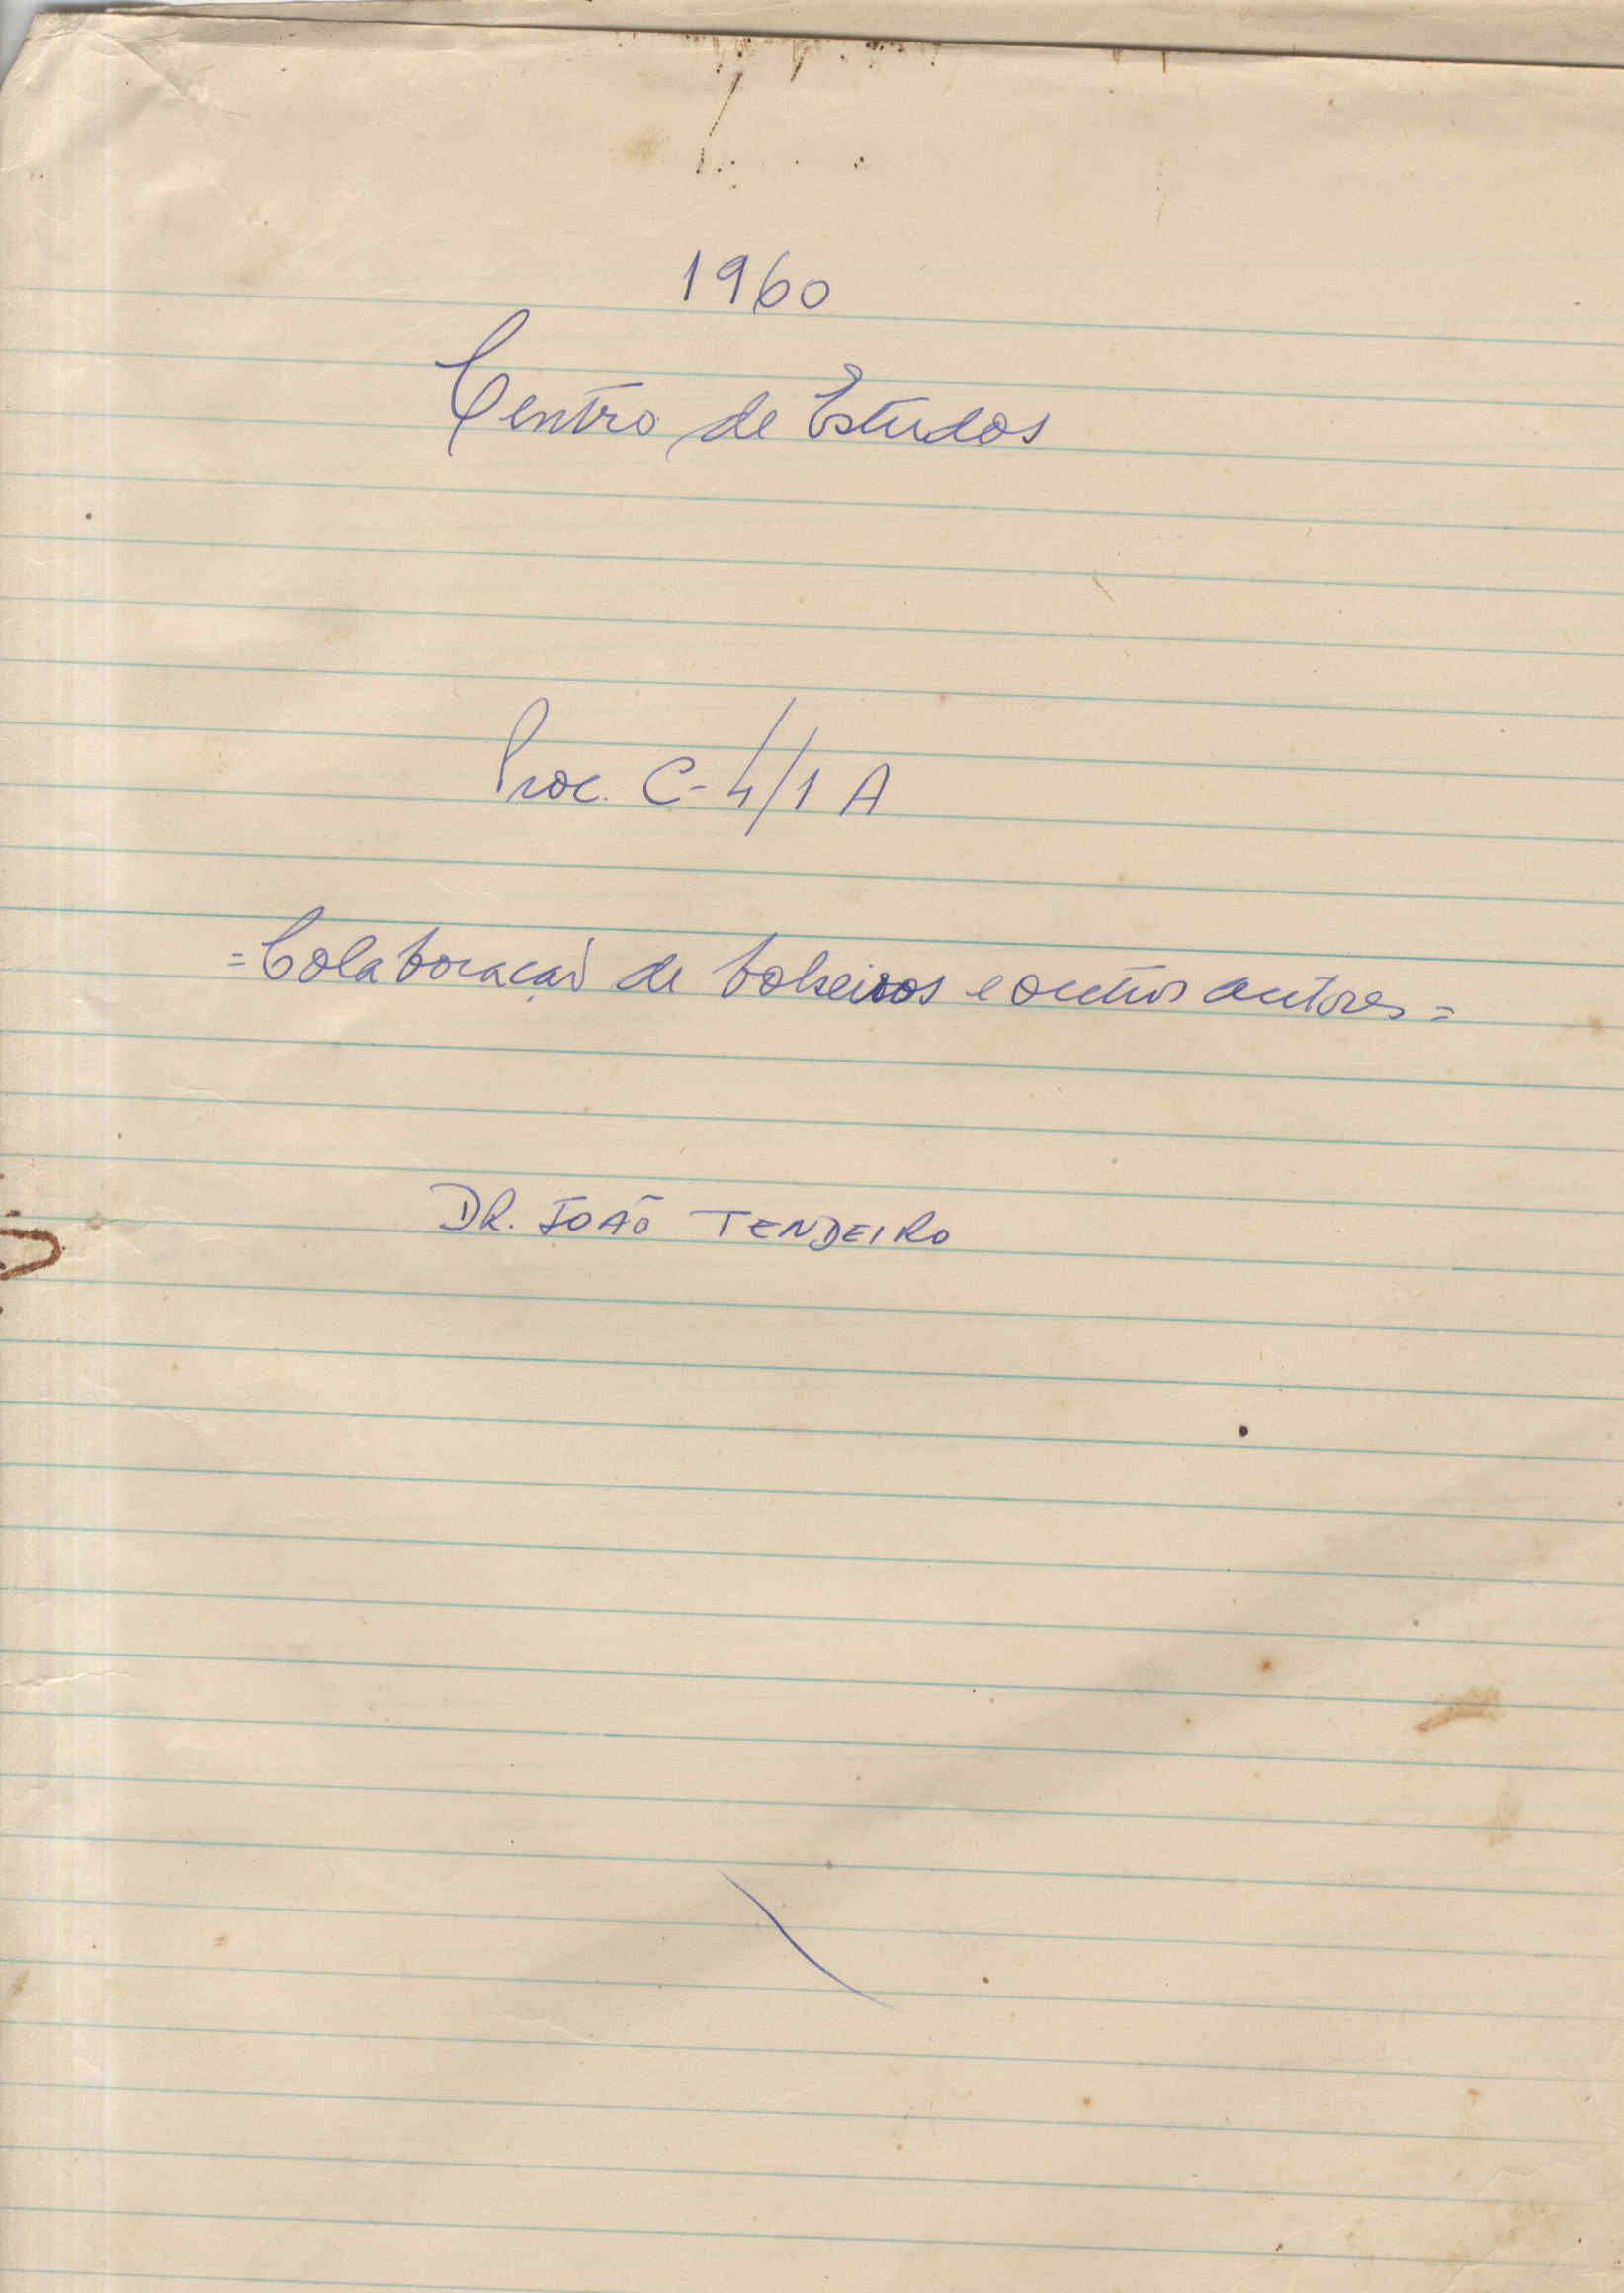 1960
Centro de Estudos
Proc. C-4/1 A
=Colaboração de bolseiros e outros autores=
DR. JOÃO TENDEIRO